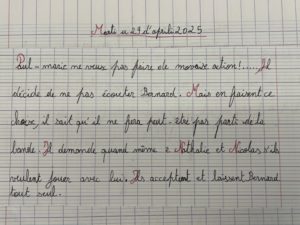 Mardi u 29 d'april 2025
Pul-marie ne veux pas faire de movaise action!.... Il
décide de ne pas écouter Barnard. Mais en faisent ce
choix, il sait qu'il ne fera peut-être pas partie de la
bande. Il demande quand même à Nathalie et Nicolas s'ils
veulent jouer avec lui. Ils acceptent et laissent Bernard
tout seul.